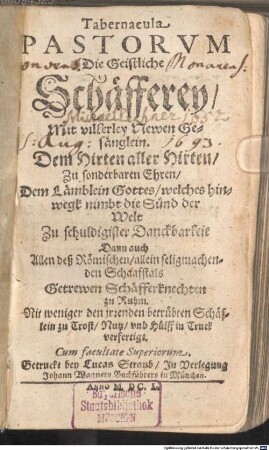 Tabernacula
PASTORVM
Die Geistliche
Schäfferey/
Mit vilerley Newen Ge-
sänglein.
1693.
Dem Hirten aller Hirten/
Zu sonderbaren Ehren/
Dem Lämblein Gottes/welches hin-
wegk nimbt die Sünd der
Welt
Zu schuldigister Danckbarkeit
Dann auch
Allen deß Römischen/allein seligmachen-
den Schaafstals
Getrewen Schäfferknechten
zu Ruhm.
Nit weniger den irrenden betrübten Schäf-
lein zu Trost/Nutz/vnd Hülff in Truck
verfertigt.
Cum facultate Superiorum.
Getruckt bey Lucas Straub/In Verlegung
Johann Wagners Buchführers in München.
ANNO M. DC. L.
Bayerische
Staatsbibliothek
MÜNCHEN